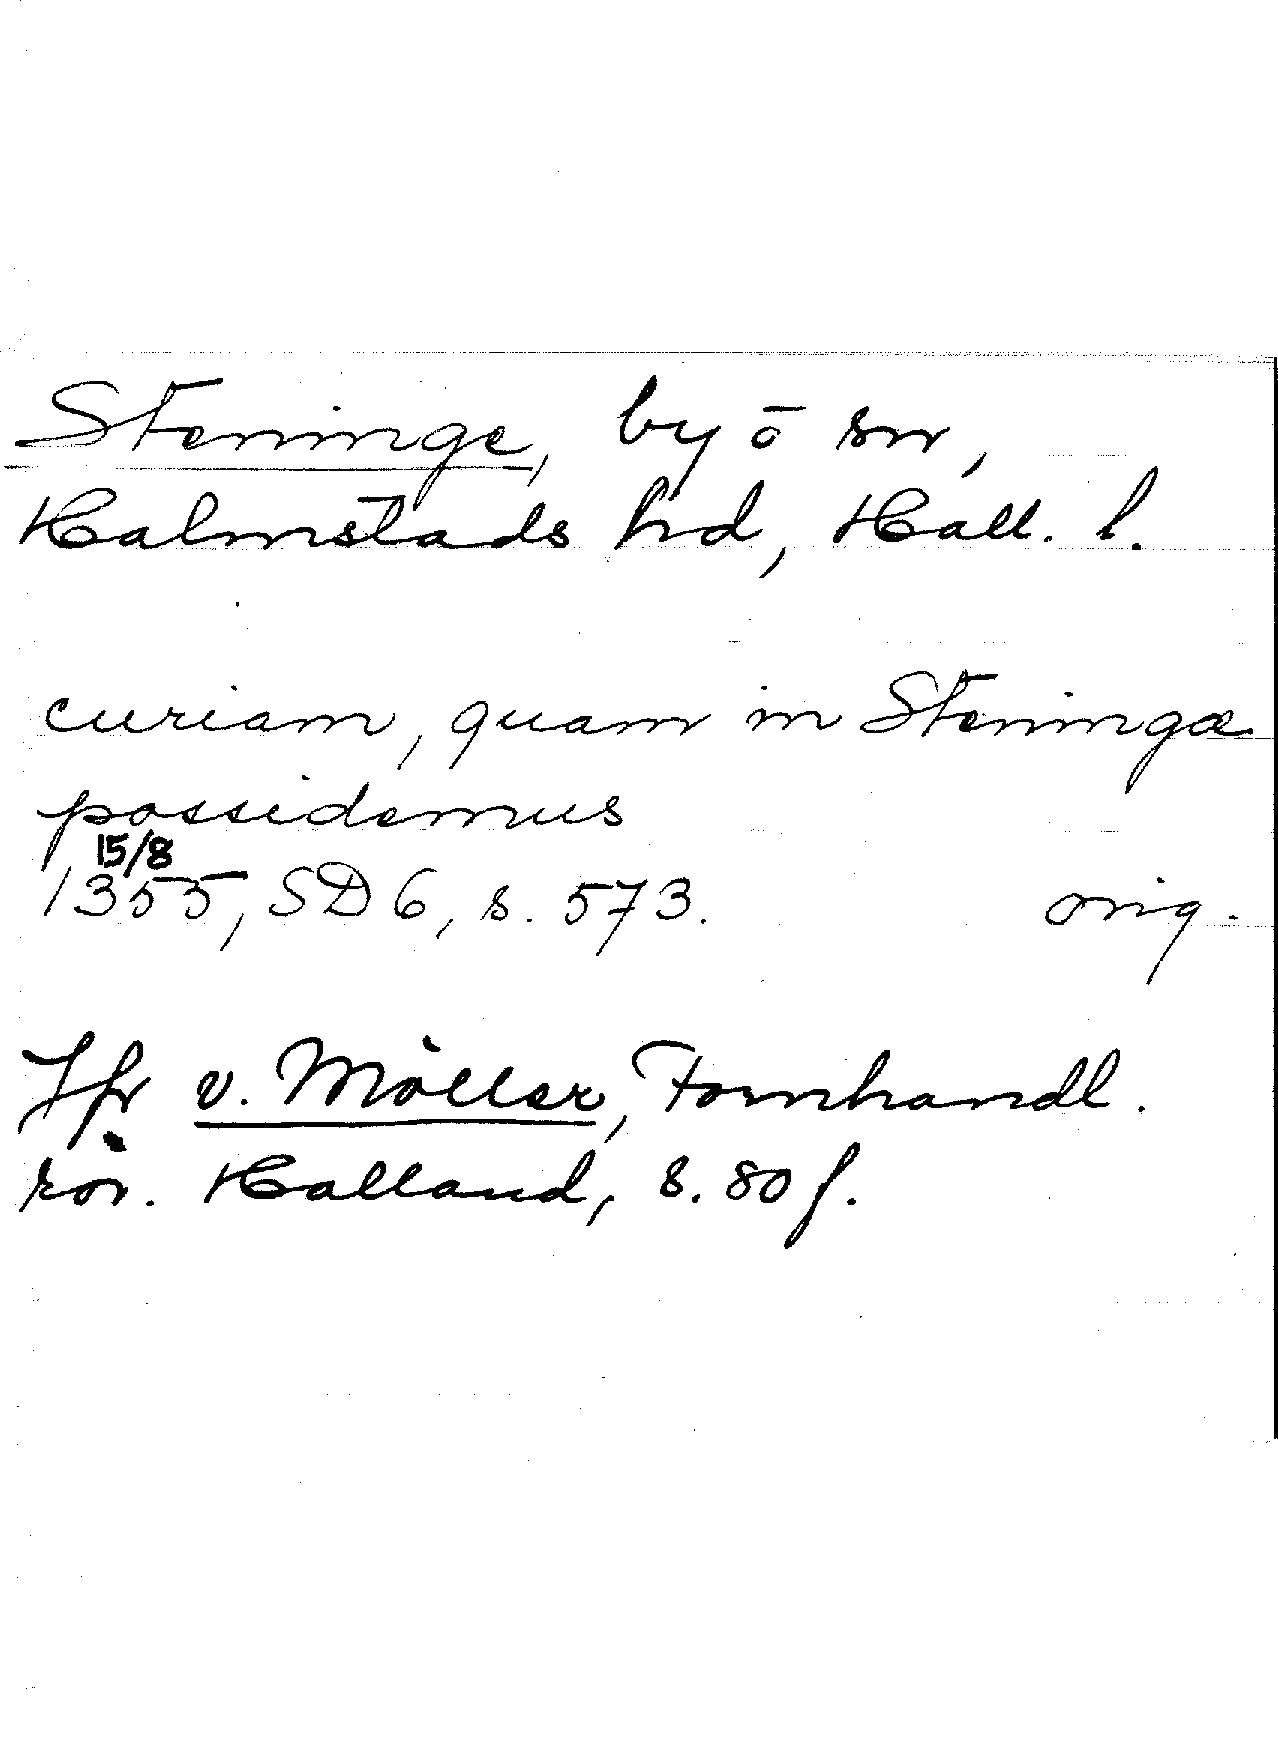 Steninge, by o sn,
Halmstads hd, Hall. l.
curiam, quam in Steningæ
possidemus
15/8
1355, SD 6, s. 573. orig.
Jfr v. Möller, Fornhandl.
rör. Halland, s. 80 f.